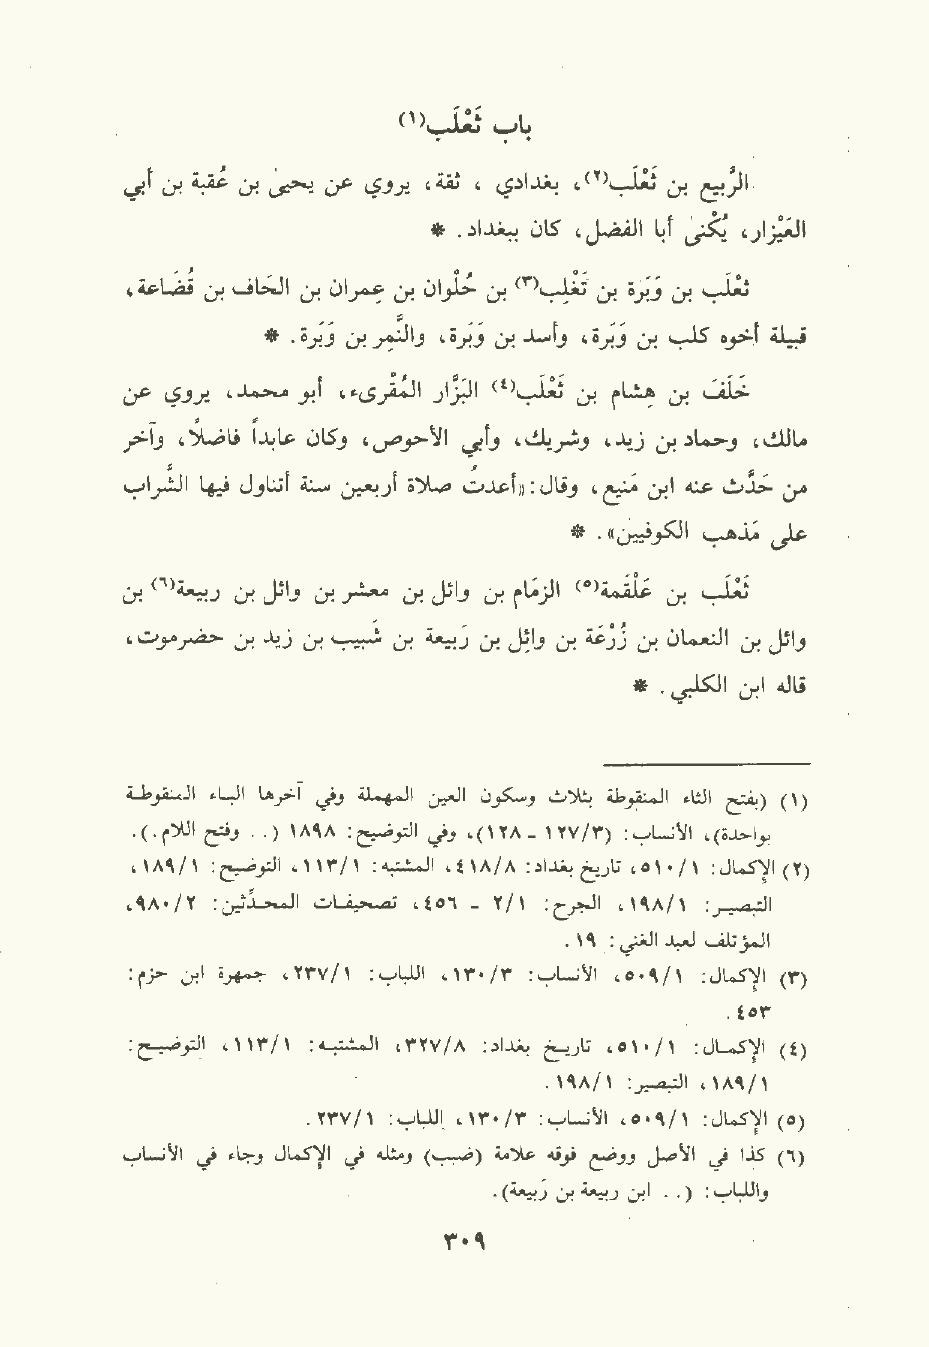 باب ثَعْلَب(١)
الرَّبيع بن ثَعْلَب(٢)، بغدادي ، ثقة، يروي عن يحيىٰ بن عُقبة بن أبي
العَيْزار، يُكْنىٰ أبا الفضل، كان ببغداد. *
ثَعْلَب بن وَبَرة بن تَغْلِب(٣) بن حُلْوان بن عمران بن الحَاف بن قُضَاعة،
قبيلة أخوه كلب بن وَبَرة، وأسد بن وَبَرة، والنَّمِر بن وَبَرة. *
خَلَف بن هشام بن ثَعْلَب(٤) البَزَّار المُقْرىء، أبو محمد، يروي عن
مالك، وحماد بن زيد، وشريك، وأبي الأحوص، وكان عابداً فاضلاً، وآخر
من حَدَّث عنه ابن مَنيع، وقال: «أعدتُ صلاة أربعين سنة أتناول فيها الشَّراب
على مَذهب الكوفيين». *
ثَعْلَب بن عَلْقَمة(٥) الزمَام بن وائل بن معشر بن وائل بن ربيعة(٦) بن
وائل بن النعمان بن زُرْعَة بن وائِل بن رَبيعة بن شَبيب بن زيد بن حضرموت،
قاله ابن الكلبي. *
(١) (بفتح الثاء المنقوطة بثلاث وسكون العين المهملة وفي آخرها الباء المنقوطة
بواحدة)، الأنساب: (٣/ ١٢٧ - ١٢٨)، وفي التوضيح: ١٨٩٨ (. . وفتح اللام.).
(٢) الإكمال: ١/ ٥١٠، تاريخ بغداد: ٨/ ٤١٨، المشتبه: ١/ ١١٣، التوضيح: ١/ ١٨٩،
التبصير: ١/ ١٩٨، الجرح: ١/ ٢ - ٤٥٦، تصحيفات المحدِّثين: ٢/ ٩٨٠،
المؤتلف لعبد الغني: ١٩.
(٣) الإكمال: ١/ ٥٠٩، الأنساب: ٣/ ١٣٠، اللباب: ١/ ٢٣٧، جمهرة ابن حزم:
٤٥٣.
(٤) الإكمال: ١/ ٥١٠، تاريخ بغداد: ٨/ ٣٢٧، المشتبه: ١/ ١١٣، التوضيح:
١/ ١٨٩، التبصير: ١/ ١٩٨.
(٥) الإكمال: ١/ ٥٠٩، الأنساب: ٣/ ١٣٠، اللباب: ١/ ٢٣٧.
(٦) كذا في الأصل ووضع فوقه علامة (ضبب) ومثله في الإكمال وجاء في الأنساب
واللباب: (. . ابن ربيعة بن رَبيعة).
٣٠٩